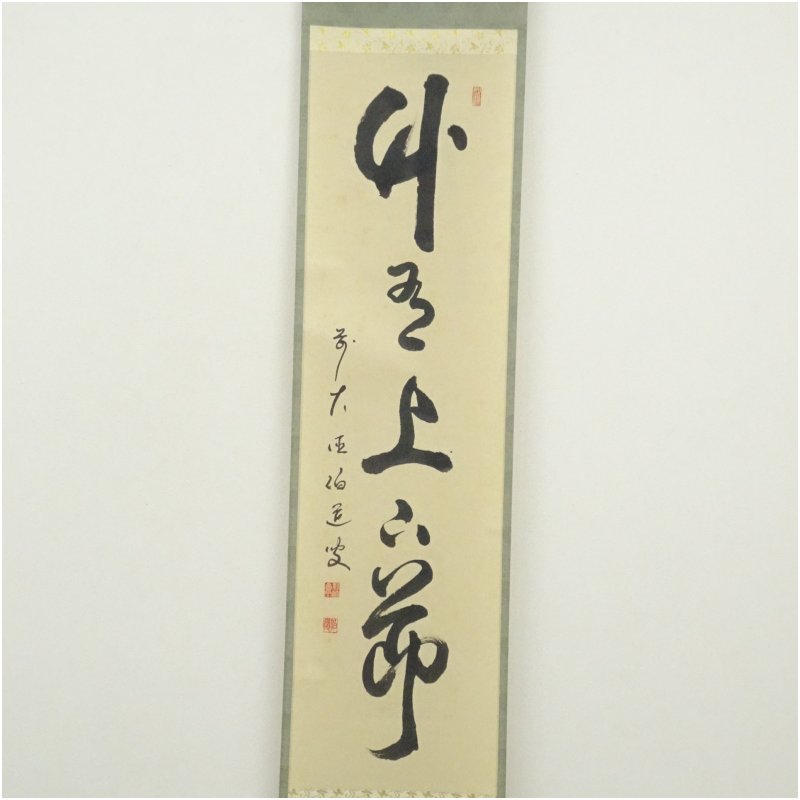 竹有上下節
前大徳伯道叟